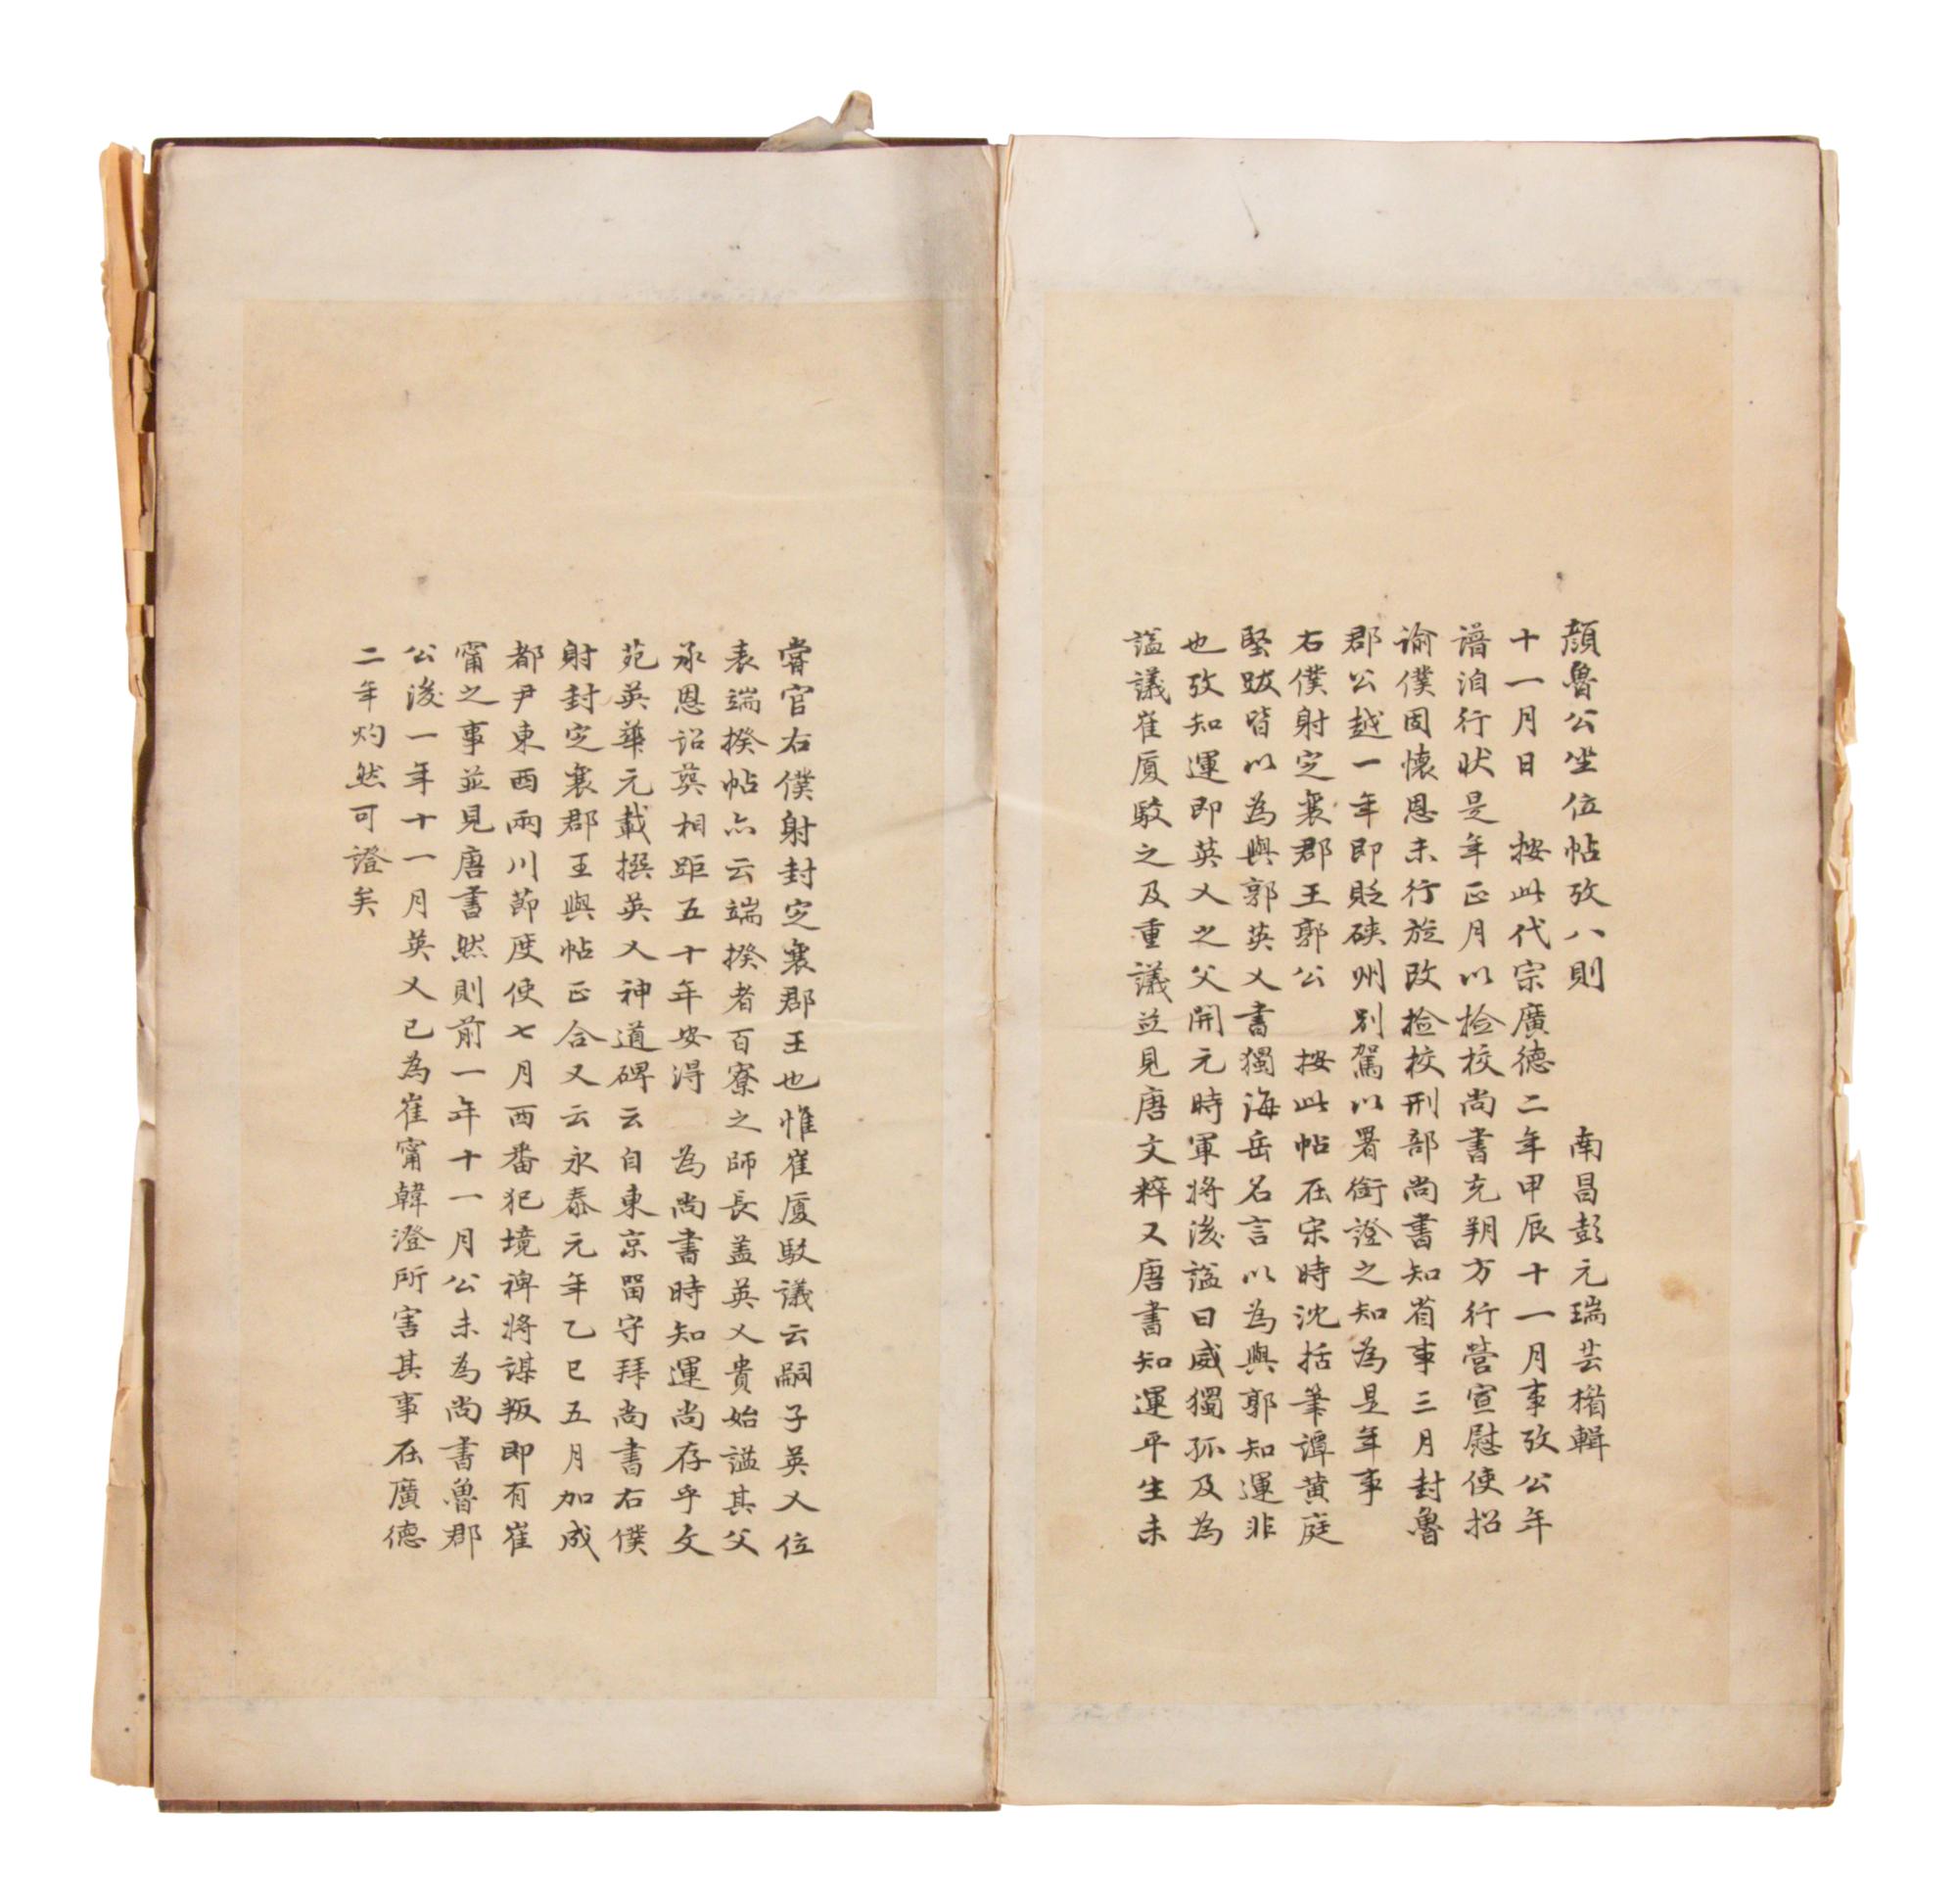 顏魯公坐位帖攷八則　南昌彭元瑞芸楣輯
十一月日　按此代宗廣德二年甲辰十一月事攷公年
譜洎行狀是年正月以檢校尚書充朔方行營宣慰使招
諭僕固懷恩未行旋改撿校刑部尚書知省事三月封魯
郡公越一年即貶硤州別駕以署銜證之知為是年事
右僕射定襄郡王郭公　按此帖在宋時沈括筆譚黃庭
堅跋皆以為與郭英乂書獨海岳名言以為與郭知運非
也攷知運即英乂之父開元時軍將後諡曰威獨孤及為
諡議崔厦駮之及重議並見唐文粹又唐書知運平生未
嘗官右僕射封定襄郡王也惟崔厦駮議云嗣子英乂位
表端揆帖亦云端揆者百寮之師長蓋英乂貴始諡其父
承恩詔葬相距五十年安得　為尚書時知運尚存乎文
苑英華元載撰英乂神道碑云自東京留守拜尚書右僕
射封定襄郡王與帖正合又云永泰元年乙巳五月加成
都尹東西兩川節度使七月西番犯境裨將謀叛即有崔
甯之事並見唐書然則前一年十一月公未為尚書魯郡
公後一年十一月英乂已為崔甯韓澄所害其事在廣德
二年灼然可證矣